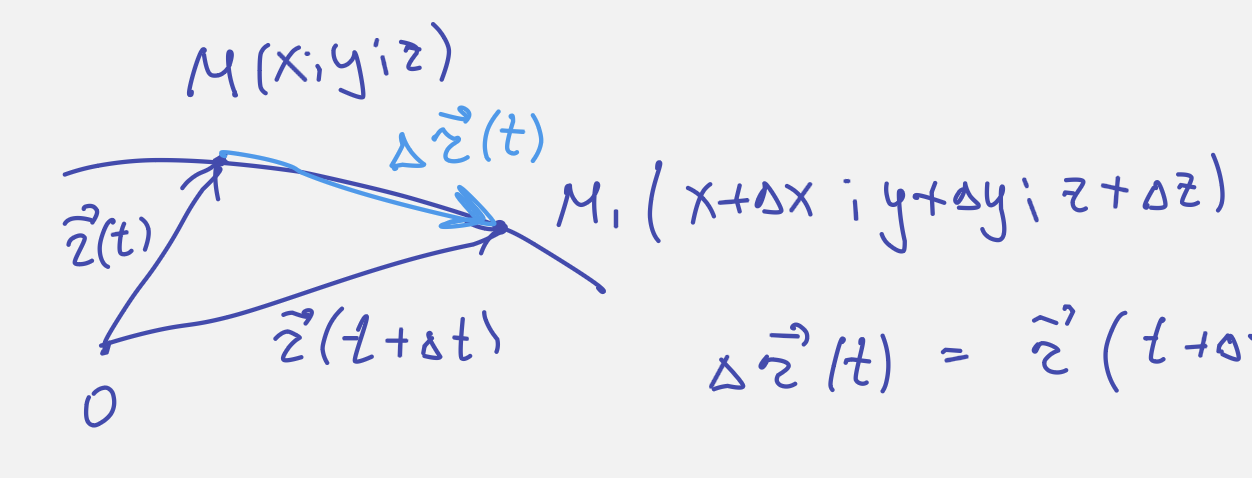 M(x; y; z)
Δr⃗(t)
M₁(x+Δx; y+Δy; z+Δz)
r⃗(t)
r⃗(t+Δt)
Δr⃗(t) = r⃗(t+Δ
O